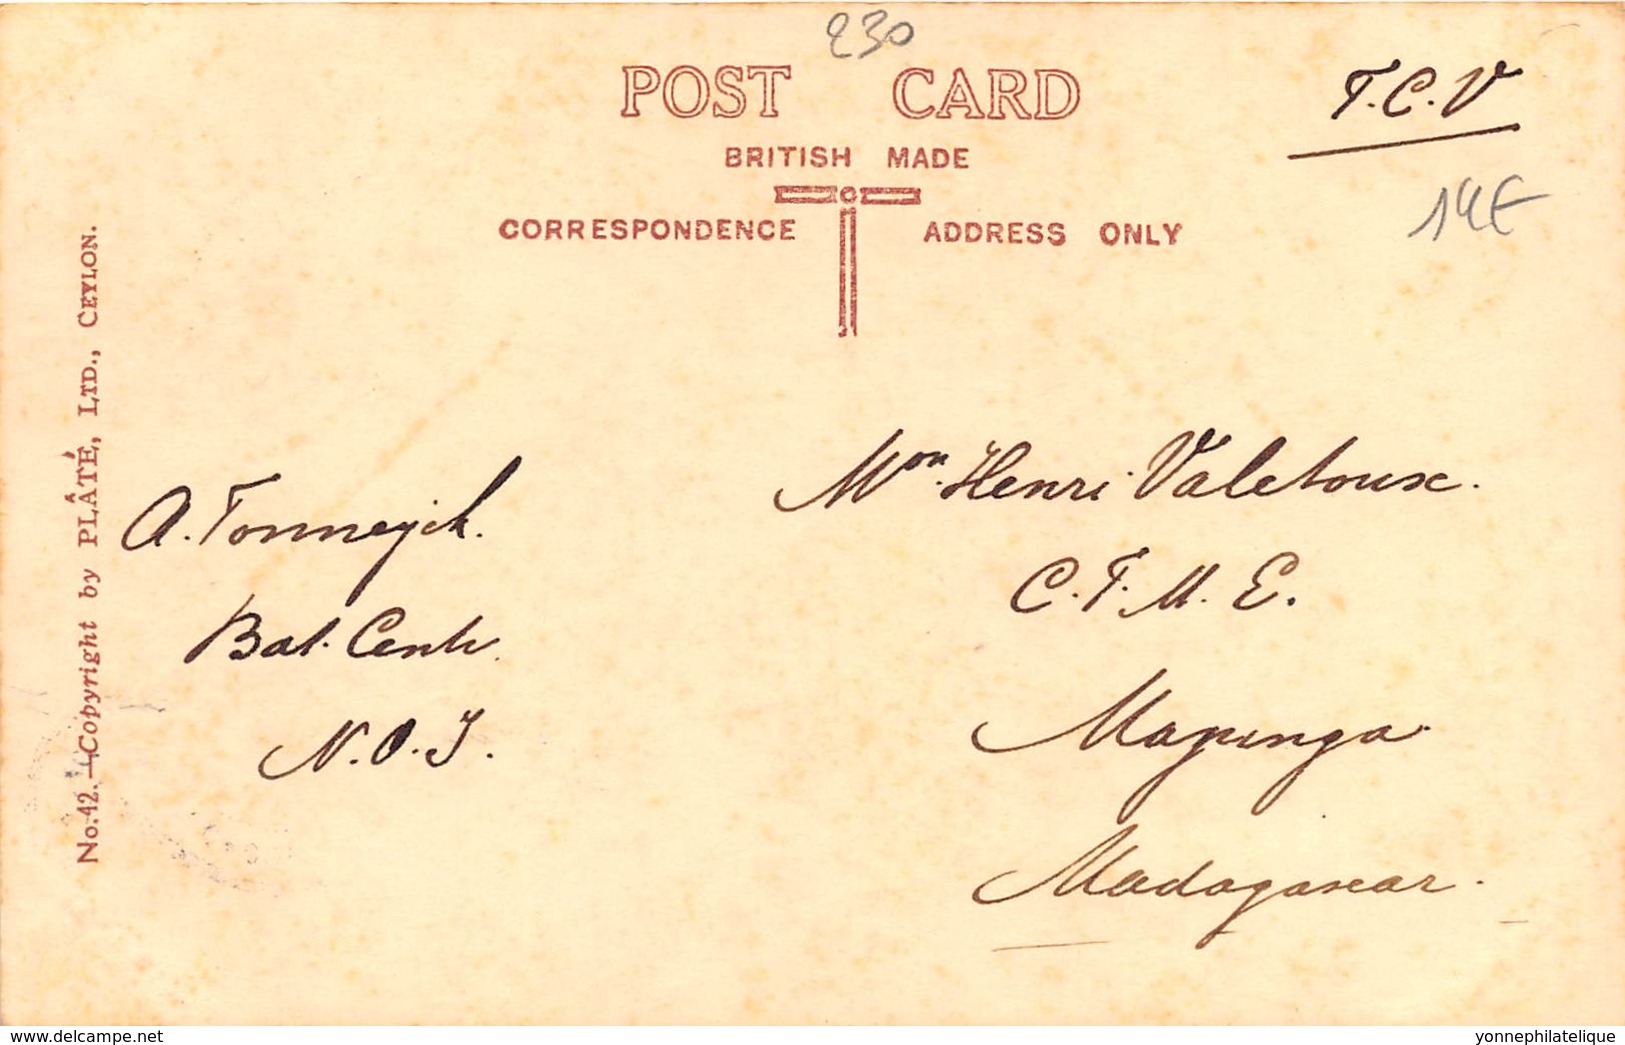 230
POST CARD
T.C.V
BRITISH MADE
14€
CORRESPONDENCE
ADDRESS ONLY
No. 42.—Copyright by PLÂTÉ, LTD., CEYLON.
A. Tonneyck.
Bat. Centr.
N.O.I.
Mon. Henri Valetoux.
C.F.M.E.
Majunga.
Madagascar.
delcampe.net
yonnephilatelique